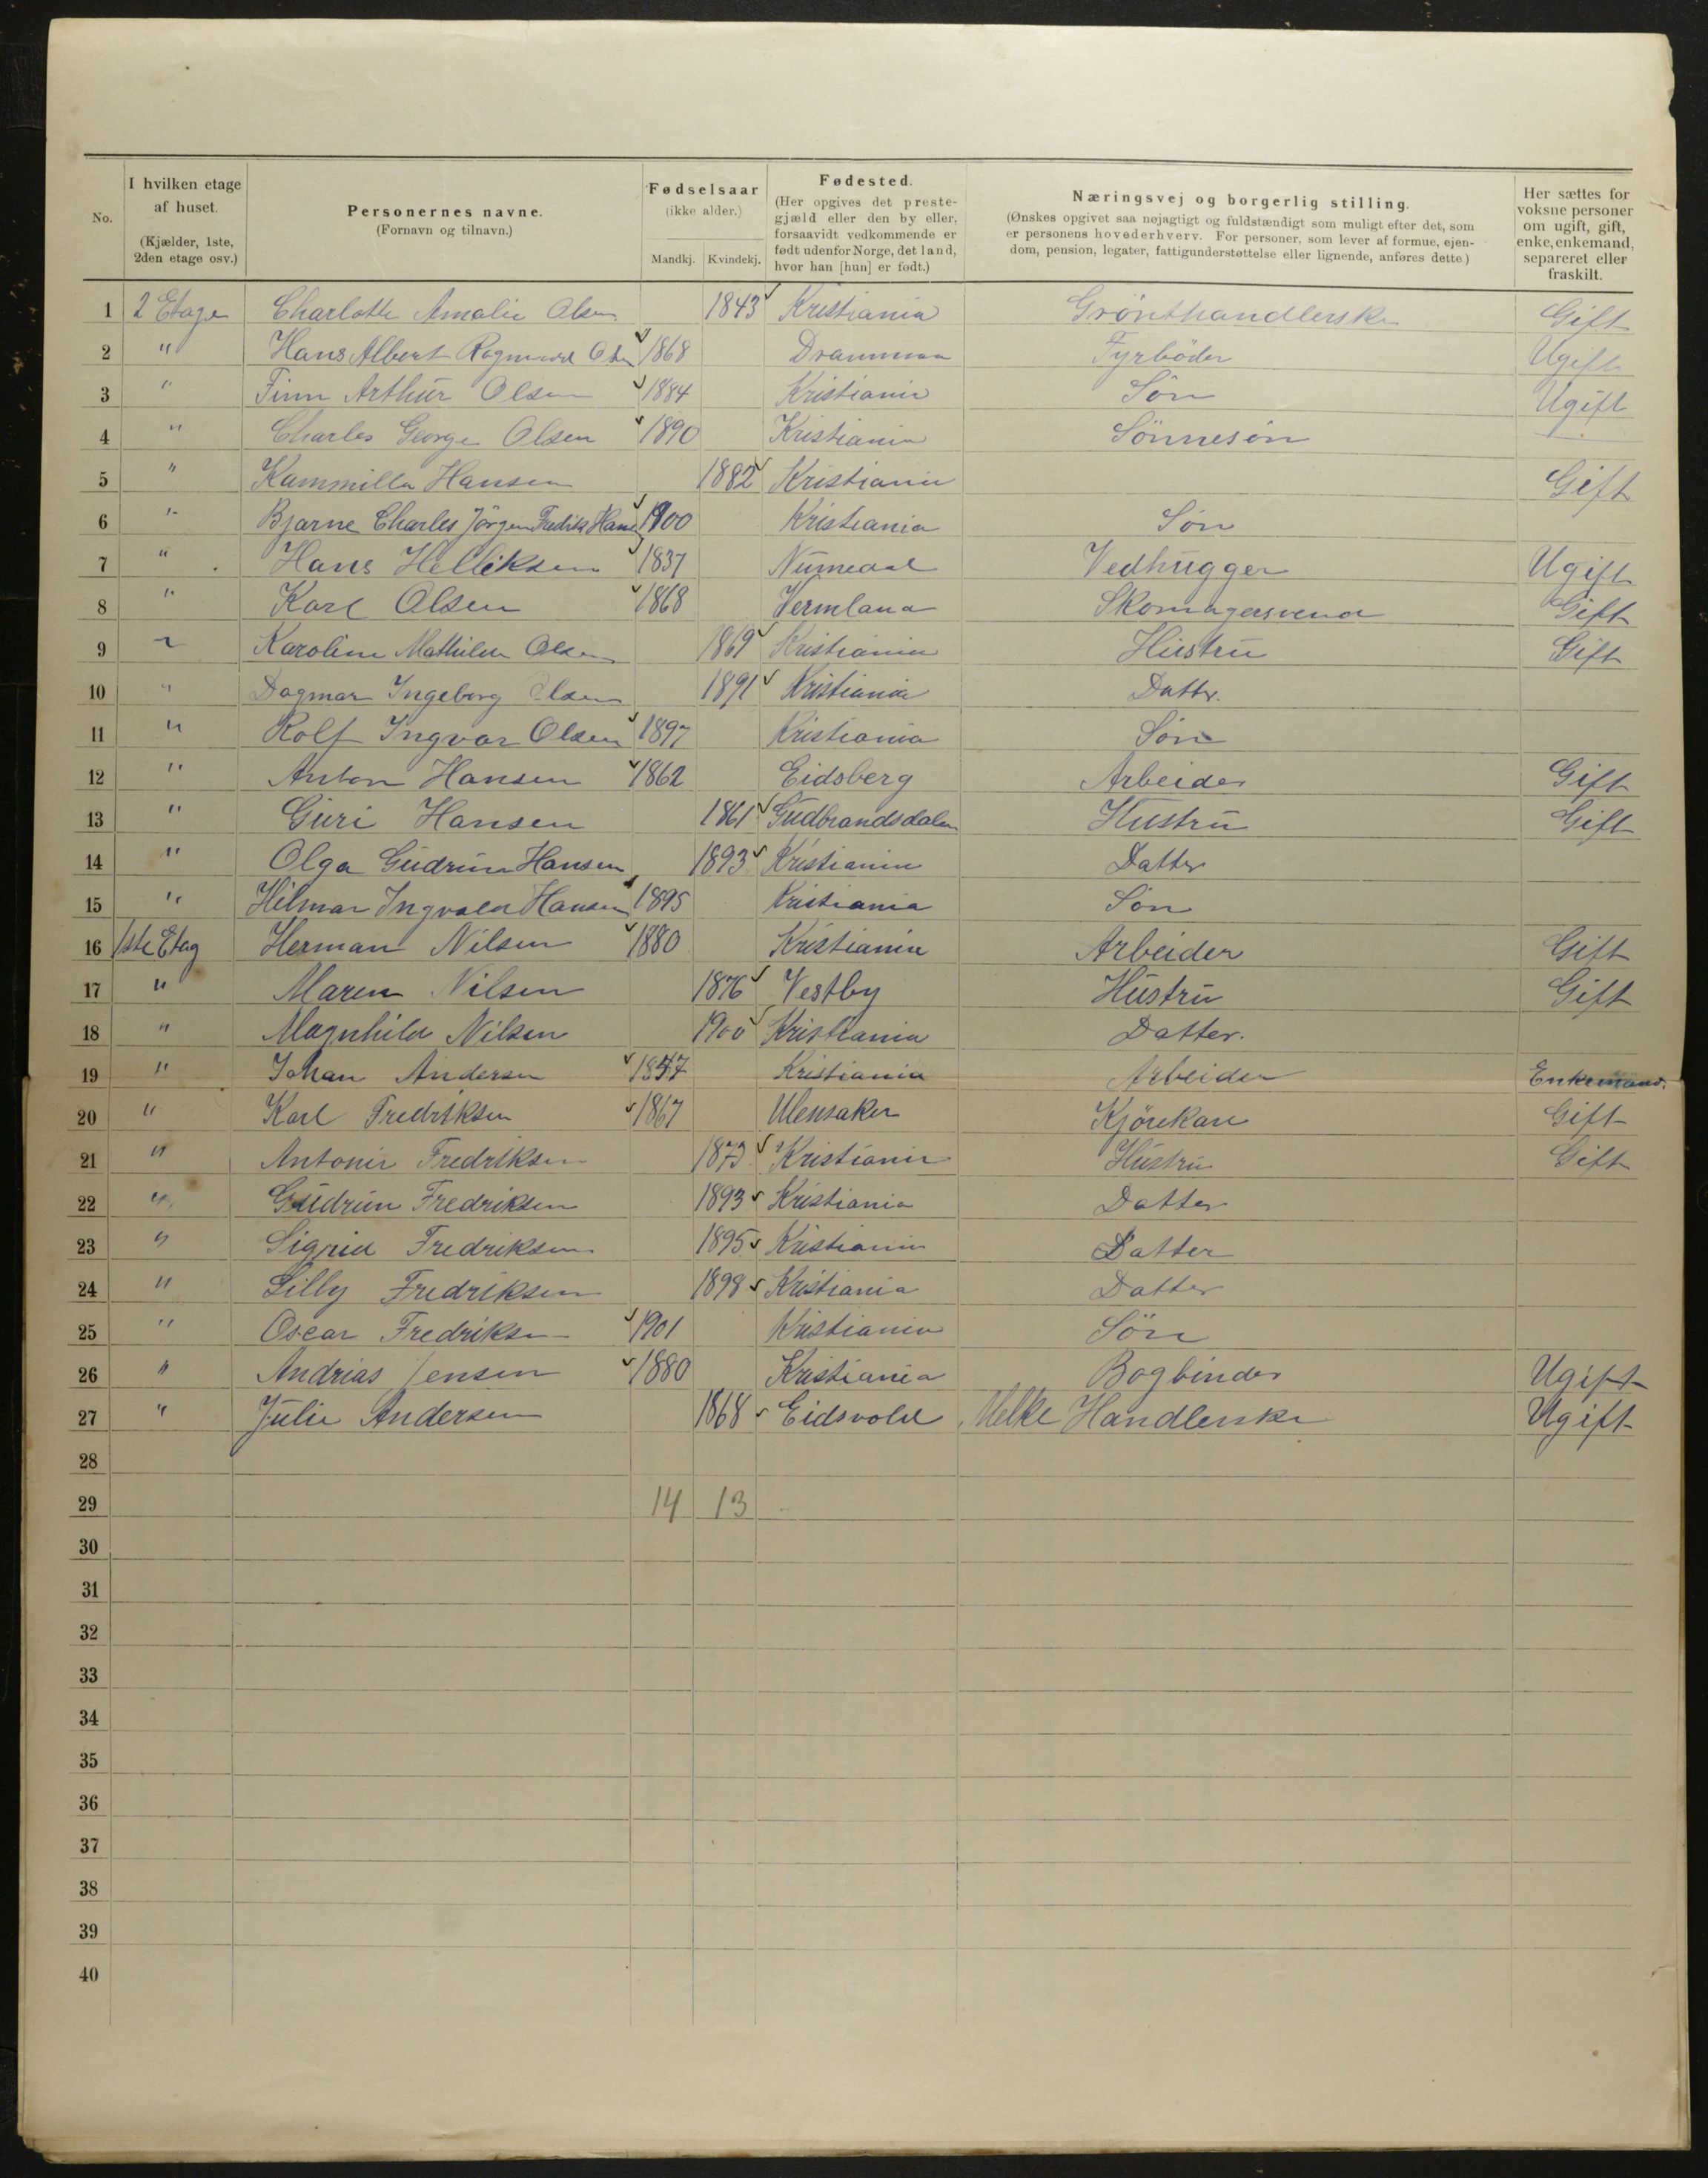 No.
I hvilken etage af huset. (Kjælder, 1ste, 2den etage osv.)
Personernes navne. (Fornavn og tilnavn.)
Fødselsaar (ikke alder.) Mandkj. Kvindekj.
Fødested. (Her opgives det prestegjæld eller den by eller, forsaavidt vedkommende er født udenfor Norge, det land, hvor han [hun] er født.)
Næringsvej og borgerlig stilling. (Ønskes opgivet saa nøjagtigt og fuldstændigt som muligt efter det, som er personens hovederhverv. For personer, som lever af formue, ejendom, pension, legater, fattigunderstøttelse eller lignende, anføres dette.)
Her sættes for voksne personer om ugift, gift, enke, enkemand, separeret eller fraskilt.
1 2 Etage Charlotte Amalie Olsen 1843 Kristiania Grönthandlerske Gift
2 " Hans Albert Olsen 1868 Drammen Fyrböder Ugift
3 " Finn Arthur Olsen 1884 Kristiania Sön Ugift
4 " Charles George Olsen 1890 Kristiania Sönnesön
5 " Kammilla Hansen 1882 Kristiania Gift
6 " Bjarne Charles Jörgen Fredrik Hans 1900 Kristiania Sön
7 " Hans Helliksen 1837 Numedal Vedhugger Ugift
8 " Karl Olsen 1868 Vermland Skomagersvend Gift
9 " Karoline Mathilde Olsen 1869 Kristiania Hustru Gift
10 " Dagmar Ingeborg Olsen 1891 Kristiania Datter.
11 " Rolf Ingvar Olsen 1897 Kristiania Sön
12 " Anton Hansen 1862 Eidsberg Arbeider Gift
13 " Guri Hansen 1861 Gudbrandsdalen Hustru Gift
14 " Olga Gudrun Hansen 1893 Kristiania Datter
15 " Hilmar Ingvald Hansen 1895 Kristiania Sön
16 1ste Etag Herman Nilsen 1880 Kristiania Arbeider Gift
17 " Maren Nilsen 1876 Vestby Hustru Gift
18 " Magnhild Nilsen 1900 Kristiania Datter.
19 " Johan Andersen Kristiania Arbeider Enkemand.
20 " Karl Fredriksen 1867 Ulensaker Kjörekarl Gift
21 " Antonie Fredriksen 1873 Kristiania Hustru Gift
22 " Gudrun Fredriksen 1893 Kristiania Datter
23 " Sigrid Fredriksen 1895 Kristiania Datter
24 " Lilly Fredriksen 1898 Kristiania Datter
25 " Oscar Fredriksen 1901 Kristiania Sön
26 " Andrias Jensen 1880 Kristiania Bogbinder Ugift
27 " Julie Andersen 1868 Eidsvold Melke Handlerske Ugift
28
29 14 13
30
31
32
33
34
35
36
37
38
39
40